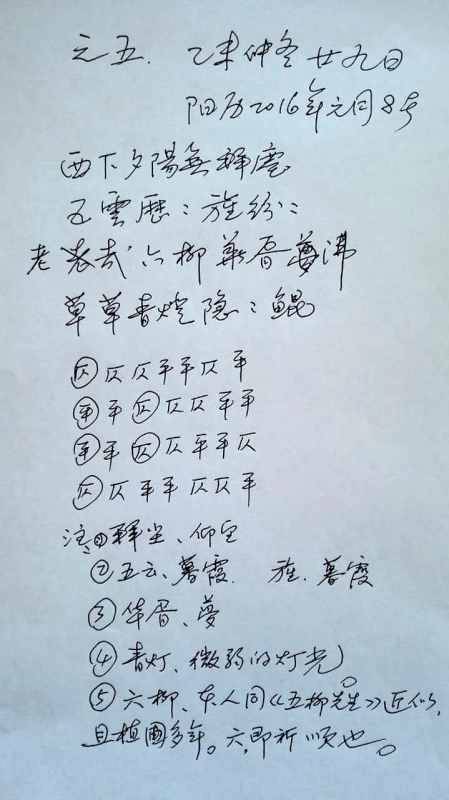 之五. 乙未仲冬廿九日
阳历2016年元月8号
西下夕陽無驛塵
五雲歷:旌紛:
老哉六柳華胥夢沸
草草青燈隐:鯤
㊀仄仄平平仄平
㊉平仄仄仄平平
㊉平仄仄平平仄
㊀仄平平仄仄平
注:①驛尘、仰望
②五云、暮霞. 旌.暮霞
③华胥、夢
④青灯、微弱的灯光。
⑤六柳、本人同《五柳先生》近似,
且植園多年。六,即祈顺也。